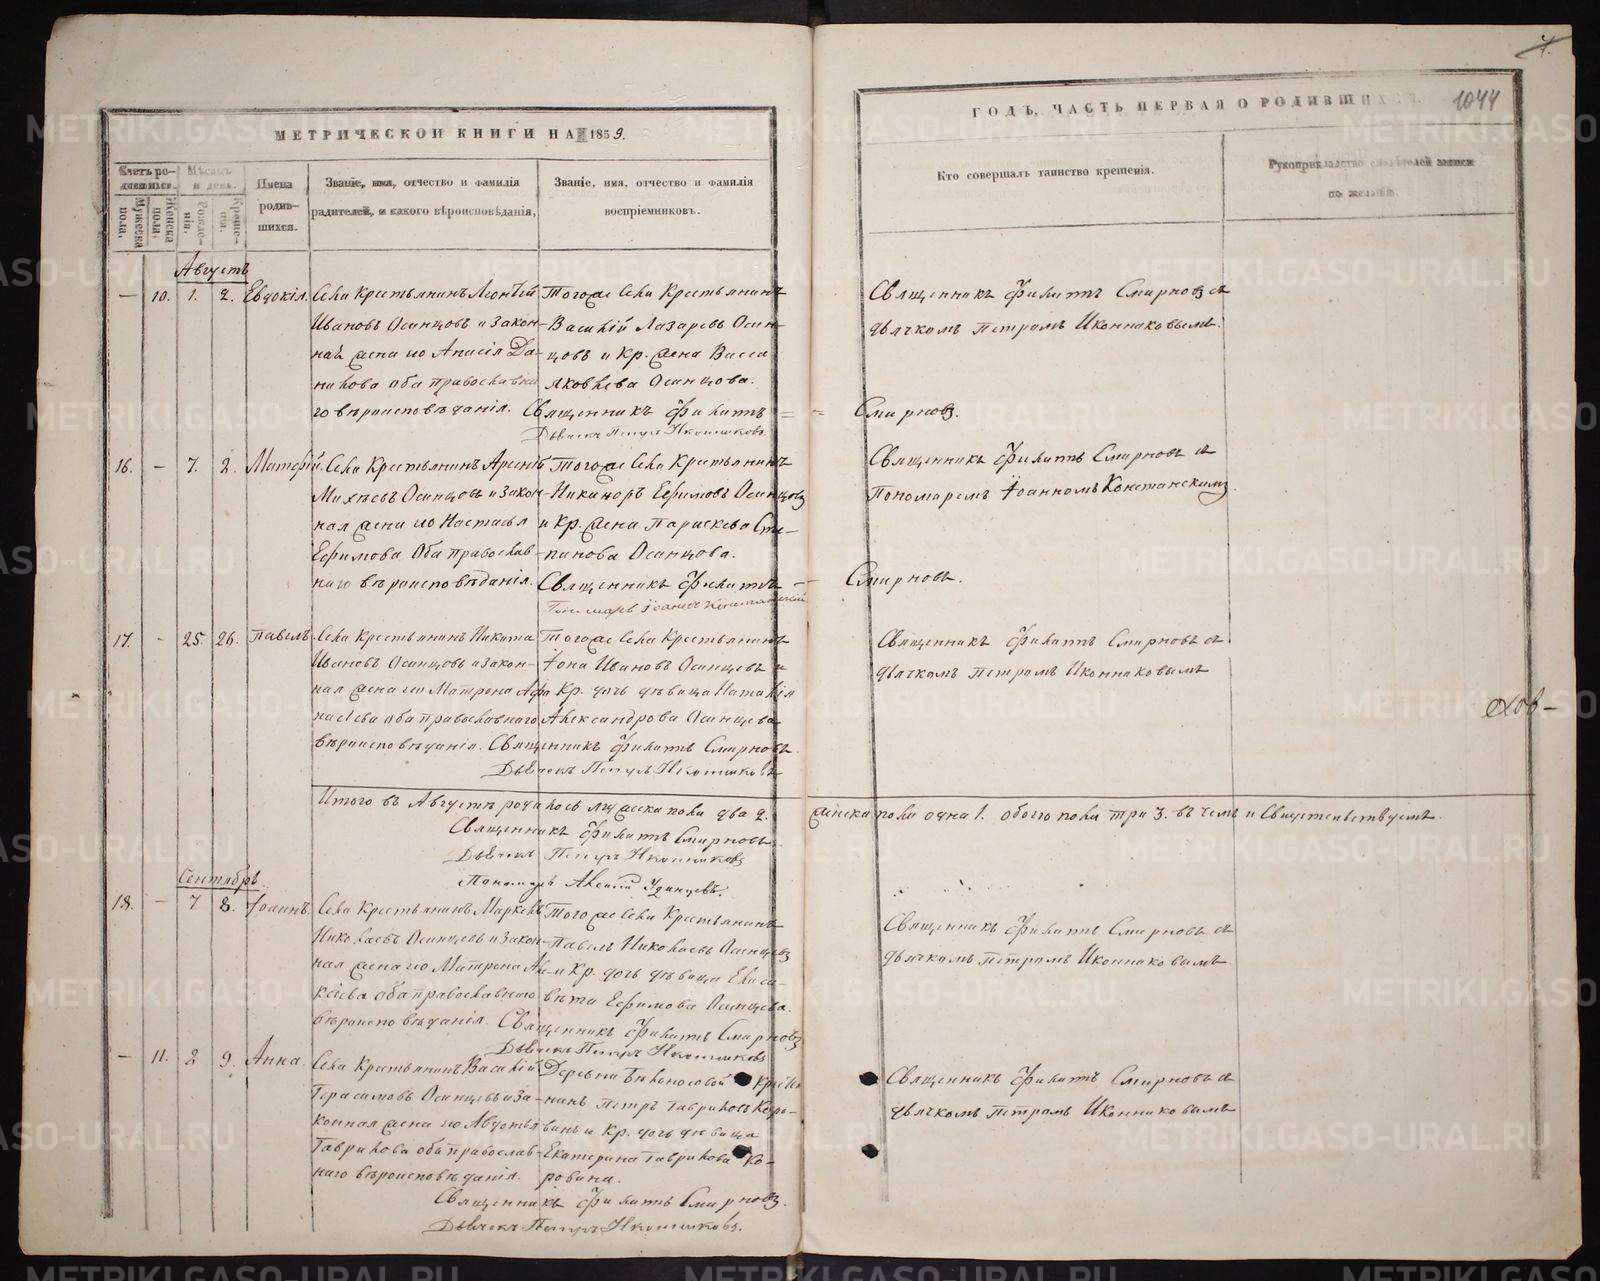 МЕТРИЧЕСКОЙ КНИГИ НА 1859.
Счетъ ро-
дившихся.
Мужеска пола,
Женска пола,
Мѣсяцъ
и день.
Рожде-
нія.
Креще-
нія.
Имена
родив-
шихся.
Званіе, имя, отчество и фамилія
родителей, и какого вѣроисповѣданія,
Званіе, имя, отчество и фамилія
воспріемниковъ.
Августъ
— 10. 1. 2. Евдокія. Села Крестьянинъ Леонтій Тогоже Села Крестьянинъ
Ивановъ Осинцовъ и закон- Василій Лазаревъ Осин-
ная жена его Анисія Да- цовъ и Кр. жена Васса
нилова оба православна Яковлева Осинцова.
го вѣроисповѣданія. Священникъ Филиппъ =
Дьячекъ Петръ Иконниковъ.
16. — 7. 2. Села Крестьянинъ Арсеній Тогоже Села Крестьянинъ
Михѣевъ Осинцовъ и закон- Никаноръ Ефимовъ Осинцовъ
ная жена его Настасья и Кр. жена Параскева Сте-
Ефимова Оба православ- панова Осинцова.
наго вѣроисповѣданія. Священникъ Филиппъ —
Пономарь Іоаннъ
17. - 25. 26. Павелъ. Села Крестьянинъ Никита Тогоже Села Крестьянинъ
Ивановъ Осинцовъ и закон- Іона Ивановъ Осинцевъ и
ная жена его Матрона Афа Кр. дочь дѣвица Наталія
насіева оба православнаго Александрова Осинцева
вѣроисповѣданія. Священникъ Филиппъ Смирновъ.
Дьячекъ Петръ Иконниковъ
Итого въ Августѣ родилось мужеска пола два 2.
Священникъ Филиппъ Смирновъ.
Дьячекъ Петръ Иконниковъ
Пономарь Алексій Удинцевъ.
Сентябрь
18. — 7 8. Іоаннъ. Села Крестьянинъ Маркелъ Тогоже Села Крестьянинъ
Николаевъ Осинцевъ и закон- Павелъ Николаевъ Осинцевъ
ная жена его Матрона Ал- и Кр. дочь дѣвица Елиса-
ксіева оба православнаго вѣта Ефимова Осинцева.
вѣроисповѣданія. Священникъ Филиппъ Смирновъ
Дьячекъ Петръ Иконниковъ
— 11. 8 9. Анна. Села Крестьянинъ Василій Деревни Бѣлоносовой
Герасимовъ Осинцевъ и за- нинъ Петръ Гавриловъ Коро-
конная жена его Авдотья винъ и Кр. дочь дѣвица
Гаврилова оба православ- Екатерина Гаврилова Ко-
наго вѣроисповѣданія. ровина.
Священникъ Филиппъ Смирновъ.
Дьячекъ Петръ Иконниковъ.
ГОДЪ, ЧАСТЬ ПЕРВАЯ О РОДИВШИХСЯ.
1044
Кто совершалъ таинство крещенія.
Рукоприкладство свидѣтелей записи
по желанію.
Священникъ Филиппъ Смирновъ съ
дьячкомъ Петромъ Иконниковымъ.
= Смирновъ.
Священникъ Филиппъ Смирновъ съ
Пономаремъ Іоанномъ
— Смирновъ.
Священникъ Филиппъ Смирновъ съ
дьячкомъ Петромъ Иконниковымъ
женска пола одна 1. обоего пола три 3. въ чемъ и Свидетельствуемъ.
Священникъ Филиппъ Смирновъ съ
дьячкомъ Петромъ Иконниковымъ.
Священникъ Филиппъ Смирновъ съ
дьячкомъ Петромъ Иконниковымъ
METRIKI.GASO-URAL.RU